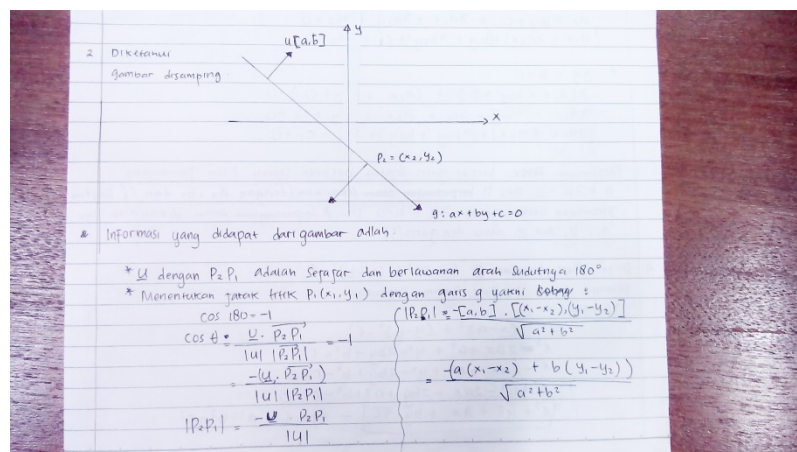 y
u[a,b]
2 Diketahui
gambar disamping
x
P₂ = (x₂, y₂)
g: ax + by + c = 0
Informasi yang didapat dari gambar adlah
* u dengan P₂P₁ adalah sejajar dan berlawanan arah sudutnya 180°
* Menentukan jarak titik P₁(x₁, y₁) dengan garis g yakni :
cos 180 = -1
cos θ = u . P₂P₁ / |u| |P₂P₁| = -1
= -(u . P₂P₁) / |u| |P₂P₁|
|P₂P₁| = -u . P₂P₁ / |u|
|P₂P₁| = -[a,b] . [(x₁-x₂),(y₁-y₂)] / √a²+b²
= -(a(x₁-x₂) + b(y₁-y₂)) / √a²+b²